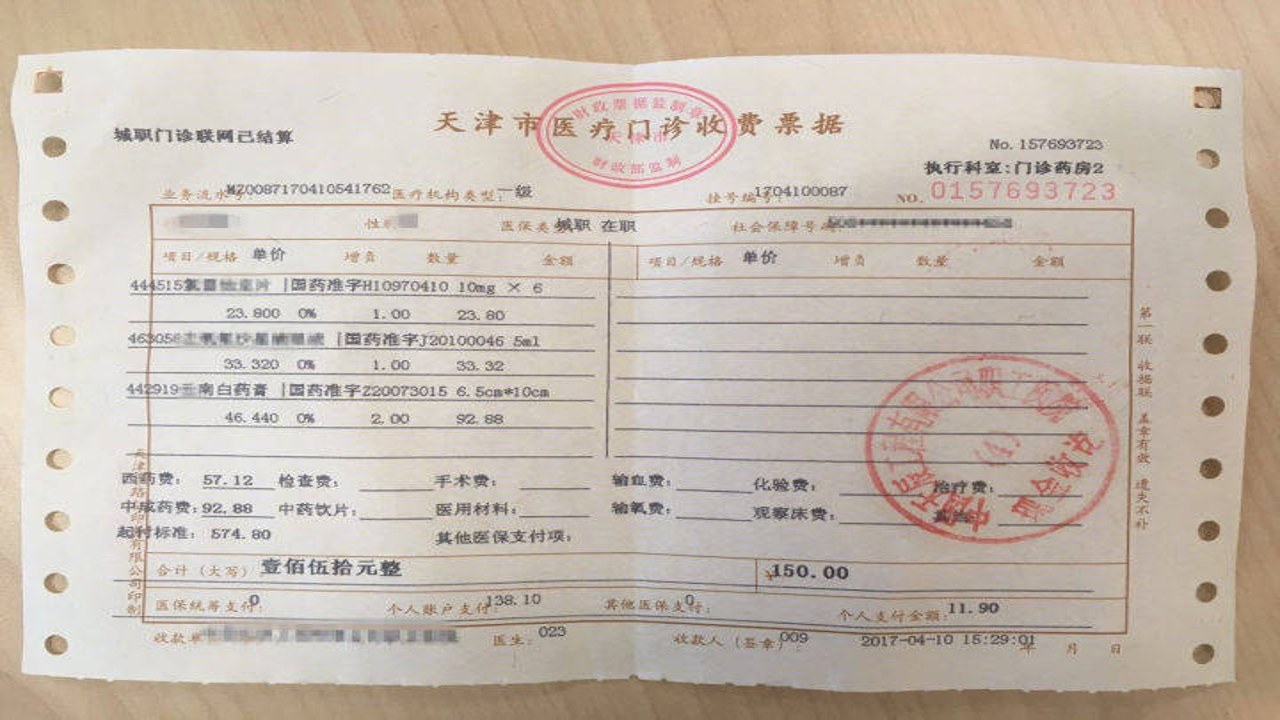 财政票据监制章
天津市医疗门诊收费票据
城职门诊联网已结算
财政部监制
No. 157693723
执行科室:门诊药房2
业务流水号: MZ0087170410541762 医疗机构类型: 一级 挂号编号: 1704100087 NO. 0157693723
性别 医保类 城职 在职 社会保障号
项目/规格 单价 增负 数量 金额 项目/规格 单价 增负 数量 金额
444515 片 |国药准字H10970410 10mg × 6
23.800 0% 1.00 23.80
463056 |国药准字J20100046 5ml
33.320 0% 1.00 33.32
442919云南白药膏 |国药准字Z20073015 6.5cm*10cm
46.440 0% 2.00 92.88
西药费: 57.12 检查费: 手术费: 输血费: 化验费: 治疗费:
中成药费: 92.88 中药饮片: 医用材料: 输氧费: 观察床费:
起付标准: 574.80 其他医保支付项:
合计（大写） 壹佰伍拾元整 ¥150.00
医保统筹支付: 0 个人账户支付: 138.10 其他医保支付: 0 个人支付金额: 11.90
收款单 医生: 023 收款人（签章）: 009 2017-04-10 15:29:01 年 月 日
第一联 收据联 盖章有效 遗失不补
职工医院
(4)
现金收讫